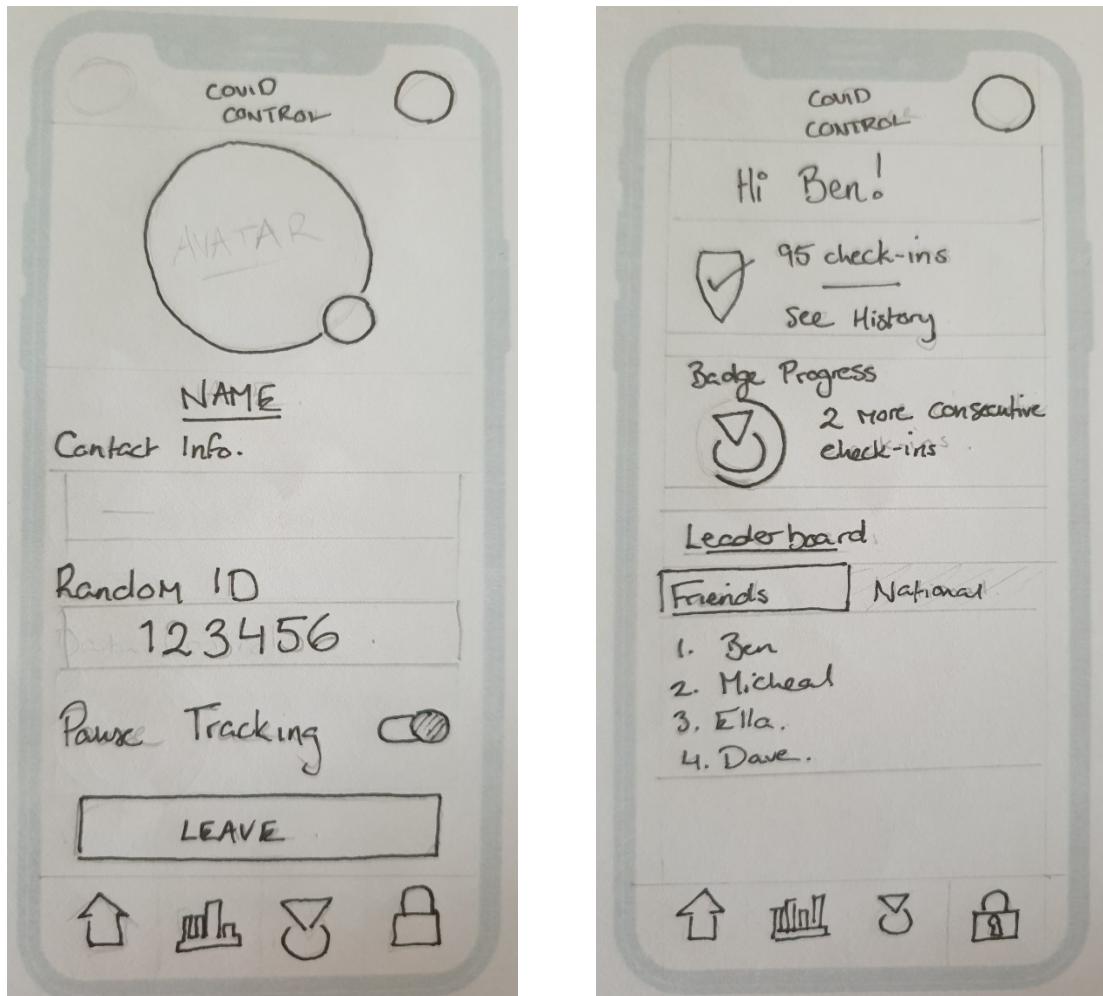 COVID
CONTROL
AVATAR
NAME
Contact Info.
Random ID
123456
Pause Tracking
LEAVE
COVID
CONTROL
Hi Ben!
95 check-ins
See History
Badge Progress
2 more consecutive
check-ins
Leaderboard
Friends National
1. Ben
2. Micheal
3. Ella.
4. Dave.